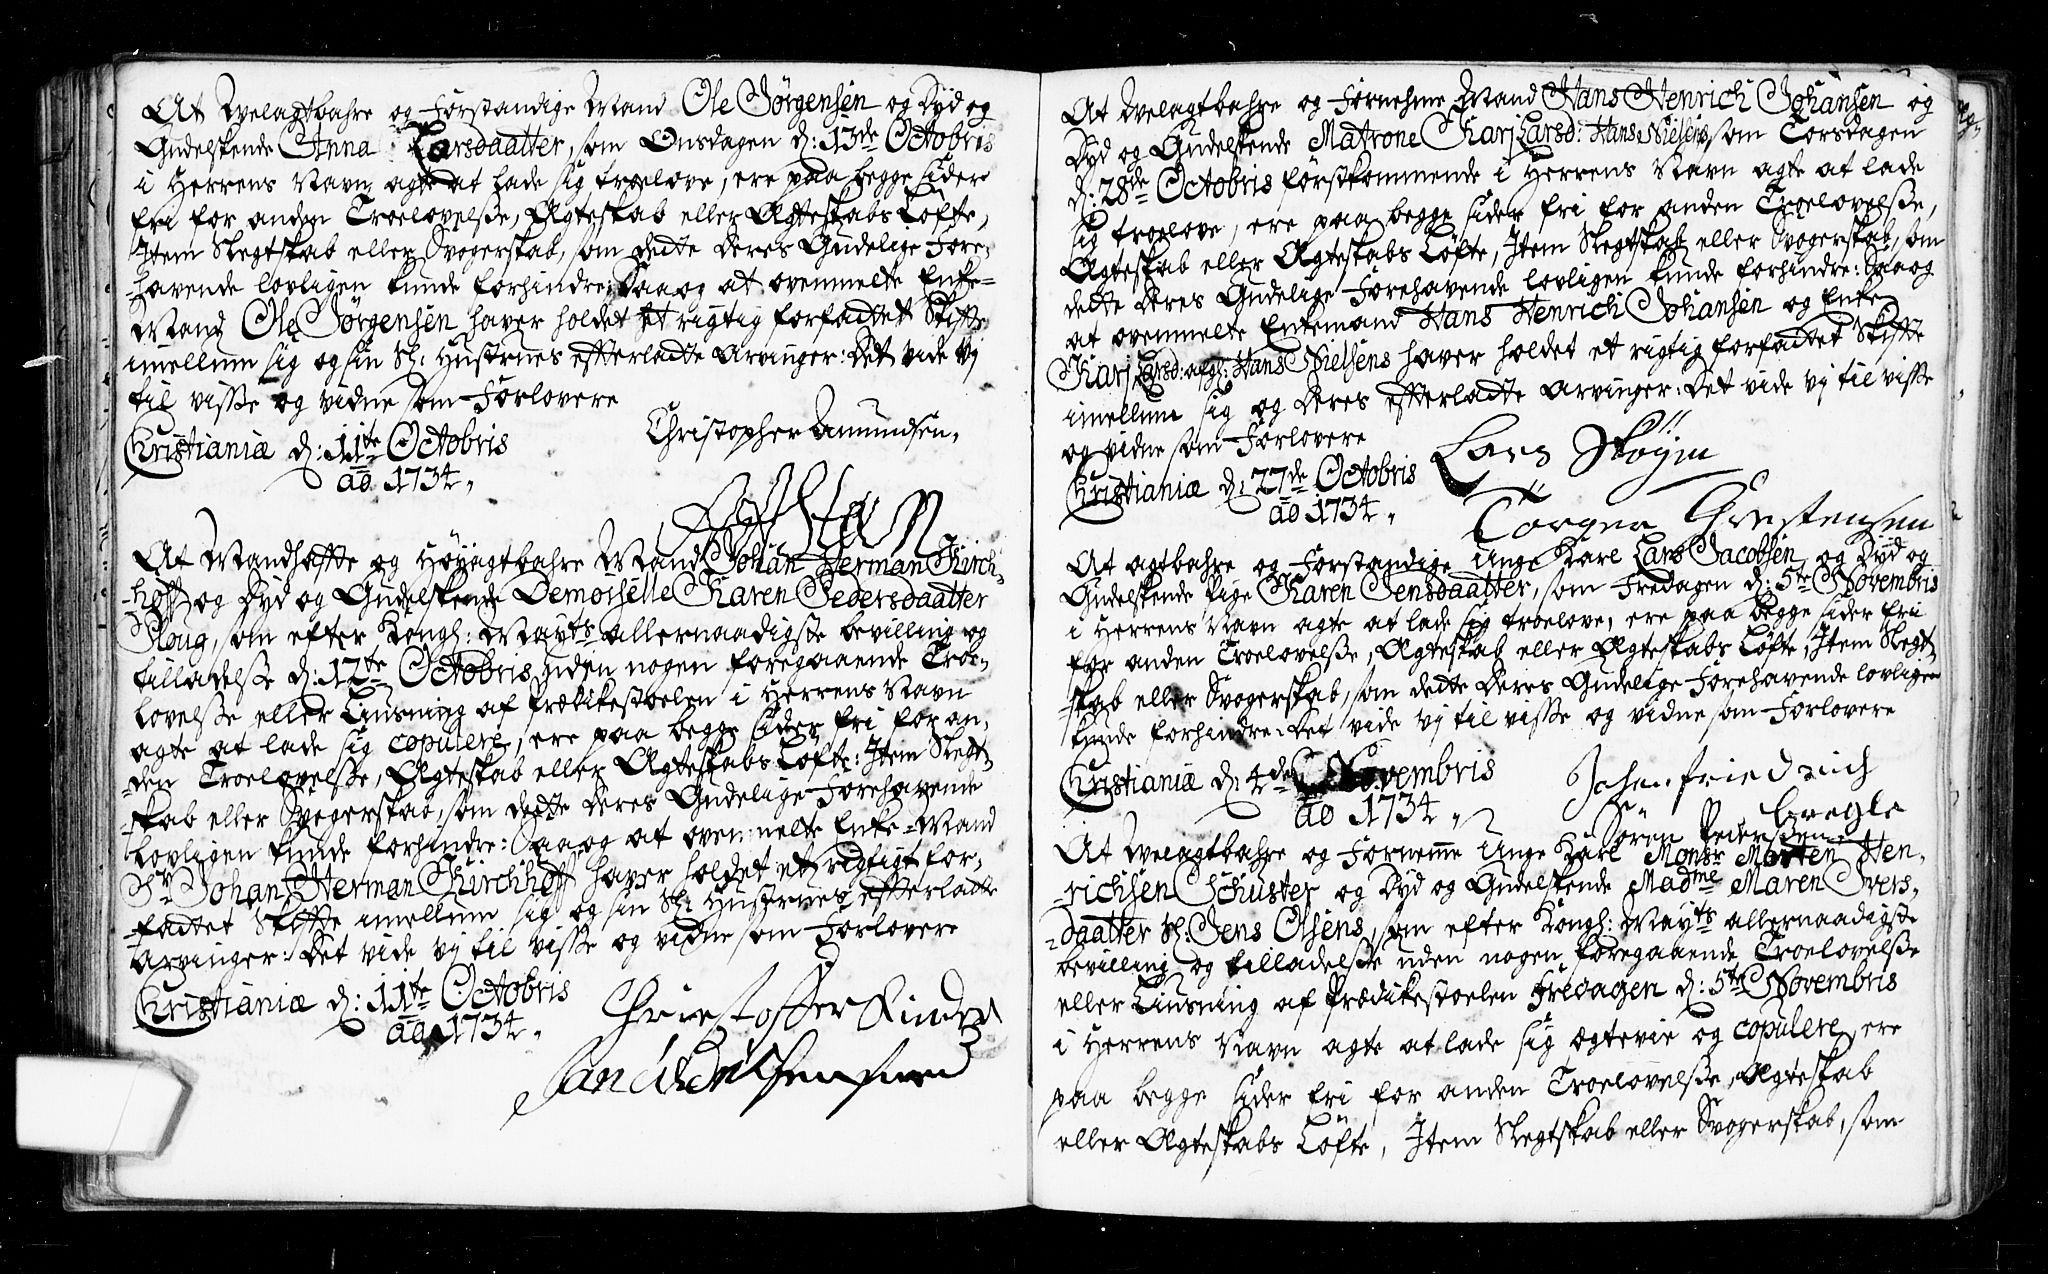 At Welagtbahre og Forstandige Mand Ole Jörgensen og Dyd og
Gudelskende Anna Larsdaatter, som Onsdagen d: 13de Octobris
i Herrens Navn agte at lade sig troelove, ere paa begge sider
fri for anden Troelovelsße, Ægteskab eller Ægteskabs Löfte,
Item Slegtskab eller Svogerskab, som dette deres Gudelige Fore-
-havende lovligen kunde forhindre: Saa og at ovenmelte Enke-
Mand Ole Jörgensen haver holdet et rigtig forfattet Skifte
imellum sig og sin Sl: Hustrues efterladte Arvinger: Det vide vj
til visße og vidne som Forlovere
Christianiæ d: 11te Octobris
ao 1734,
Christopher Amundsen,
At Mandhafte og Höyagtbahre Mand Johan Herman Kirch-
-hoff og Dyd og Gudelskende Demoiselle Karen Pedersdaatter
Ploug, som efter Kongl: Mayts allernaadigste bevilling og
tilladelsße d: 12te Octobris uden nogen foregaaende Troe-
lovelsße eller Liusning af Prædikestoelen i Herrens Navn
agte at lade sig copulere, ere paa begge sider fri for an-
-den Troelovelsße, Ægteskab eller Ægteskabs Löfte: Item Slegt-
-skab eller Svogerskab, som dette deres Gudelige Forehavende
lovligen kunde forhindre: Saa og at ovenmelte Enke-Mand
Sr Johan Herman Kirchhoff haver holdet et rigtigt for-
-fattet Skifte imellum sig og sin Sl: Hustrues efterladte
Arvinger: Det vide vj til visße og vidne som Forlovere
Christianiæ d: 11te Octobris
ao 1734,
Christoffer
At Welagtbahre og Fornehme Mand Hans Henrich Johansen og
Dyd og Gudelskende Matrone Kari Larsd: Hans Nielsens, som Torsdagen
d: 28de Octobris förstkommende i Herrens Navn agte at lade
sig troelove, ere paa begge sider fri for anden Troelovelsße,
Ægteskab eller Ægteskabs Löfte, Item Slegtskab eller Svogerskab, som
dette deres Gudelige Forehavende lovligen kunde forhindre: Saa og
at ovenmelte Enkemand Hans Henrich Johansen og Enke
Kari Larsd: afgl: Hans Nielsens haver holdet et rigtig forfattet Skifte
imellum sig og deres efterladte Arvinger: Det vide vj til visße
og vidne som Forlovere
Christianiæ d: 27de Octobris
ao 1734,
Lars Sköyen
Törger Grestensen
At agtbahre og Forstandige Unge Karl Lars Jacobsen og Dyd og
Gudelskende Pige Karen Jensdaatter, som Fredagen d: 5te Novembris
i Herrens Navn agte at lade sig troelove, ere paa begge sider fri
for anden Troelovelsße, Ægteskab eller Ægteskabs Löfte, Item Slegt-
-skab eller Svogerskab, som dette deres Gudelige Forehavende lovligen
kunde forhindre: Det vide vj til visße og vidne som Forlovere
Christianiæ d: 4de Novembris
ao 1734,
Johan friedrich
Sören Pedersen
At Welagtbahre og Fornemme Unge Karl Monsr Morten Hen-
-richsen Schuster og Dyd og Gudelskende Madme Maren Ivers-
-daatter Sl: Jens Olsens, som efter Kongl: Mayts allernaadigste
bevilling og tilladelsße uden nogen foregaaende Troelovelsße
eller Liusning af Prædikestoelen Fredagen d: 5te Novembris
i Herrens Navn agte at lade sig ægtevie og copulere, ere
paa begge sider fri for anden Troelovelsße, Ægteskab
eller Ægteskabs Löfte, Item Slegtskab eller Svogerskab, som